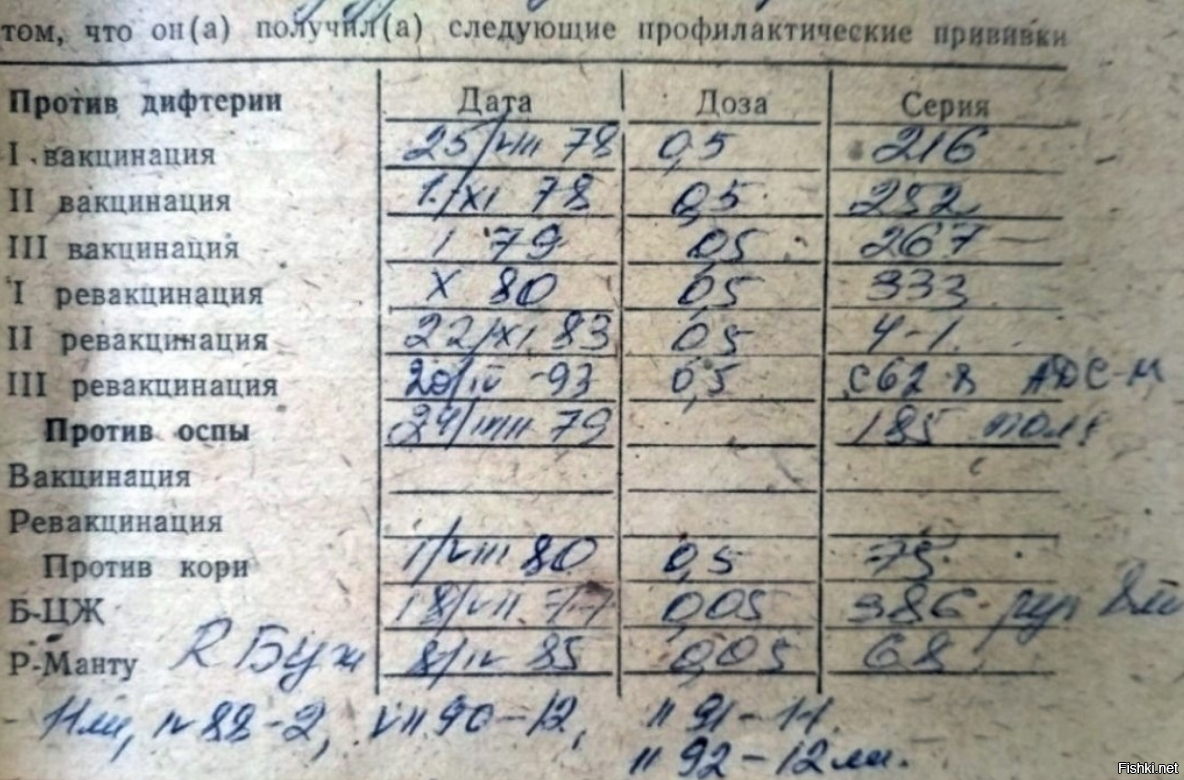 том, что он(а) получил(а) следующие профилактические прививки
Против дифтерии Дата Доза Серия
I вакцинация 25/VIII 78 0,5 216
II вакцинация 1/XI 78 0,5 292
III вакцинация I 79 0,5 267
I ревакцинация X 80 0,5 333
II ревакцинация 22/XI 83 0,5 4-1
III ревакцинация 20/IV-93 0,5 С62-8 АДС-М
Против оспы 79 185
Вакцинация
Ревакцинация
Против кори 1/VIII 80 0,5 75
Б-ЦЖ 18/VII 77 0,05 386
Р-Манту R Буж 8/IV 85 0,05 68
11мм, IV 88-2, VII 90-12, II 91-14
II 92-12мм.
Fishki.net